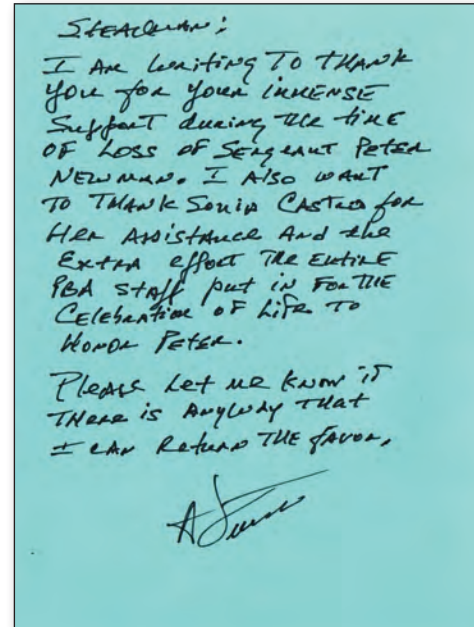 STEADMAN:
I AM WRITING TO THANK
YOU for YOUR IMMENSE
Support during THE TIME
OF LOSS OF SERGEANT PETER
NEWMAN. I Also WANT
TO THANK SONIA CASTRO for
HER ASSISTANCE And the
EXTRA effort THE ENTIRE
PBA STAFF put in FOR THE
CELEBRATION OF LIFE TO
HONOR PETER.
PLEASE Let ME KNOW if
THERE is ANYWAY THAT
I CAN RETURN THE FAVOR,